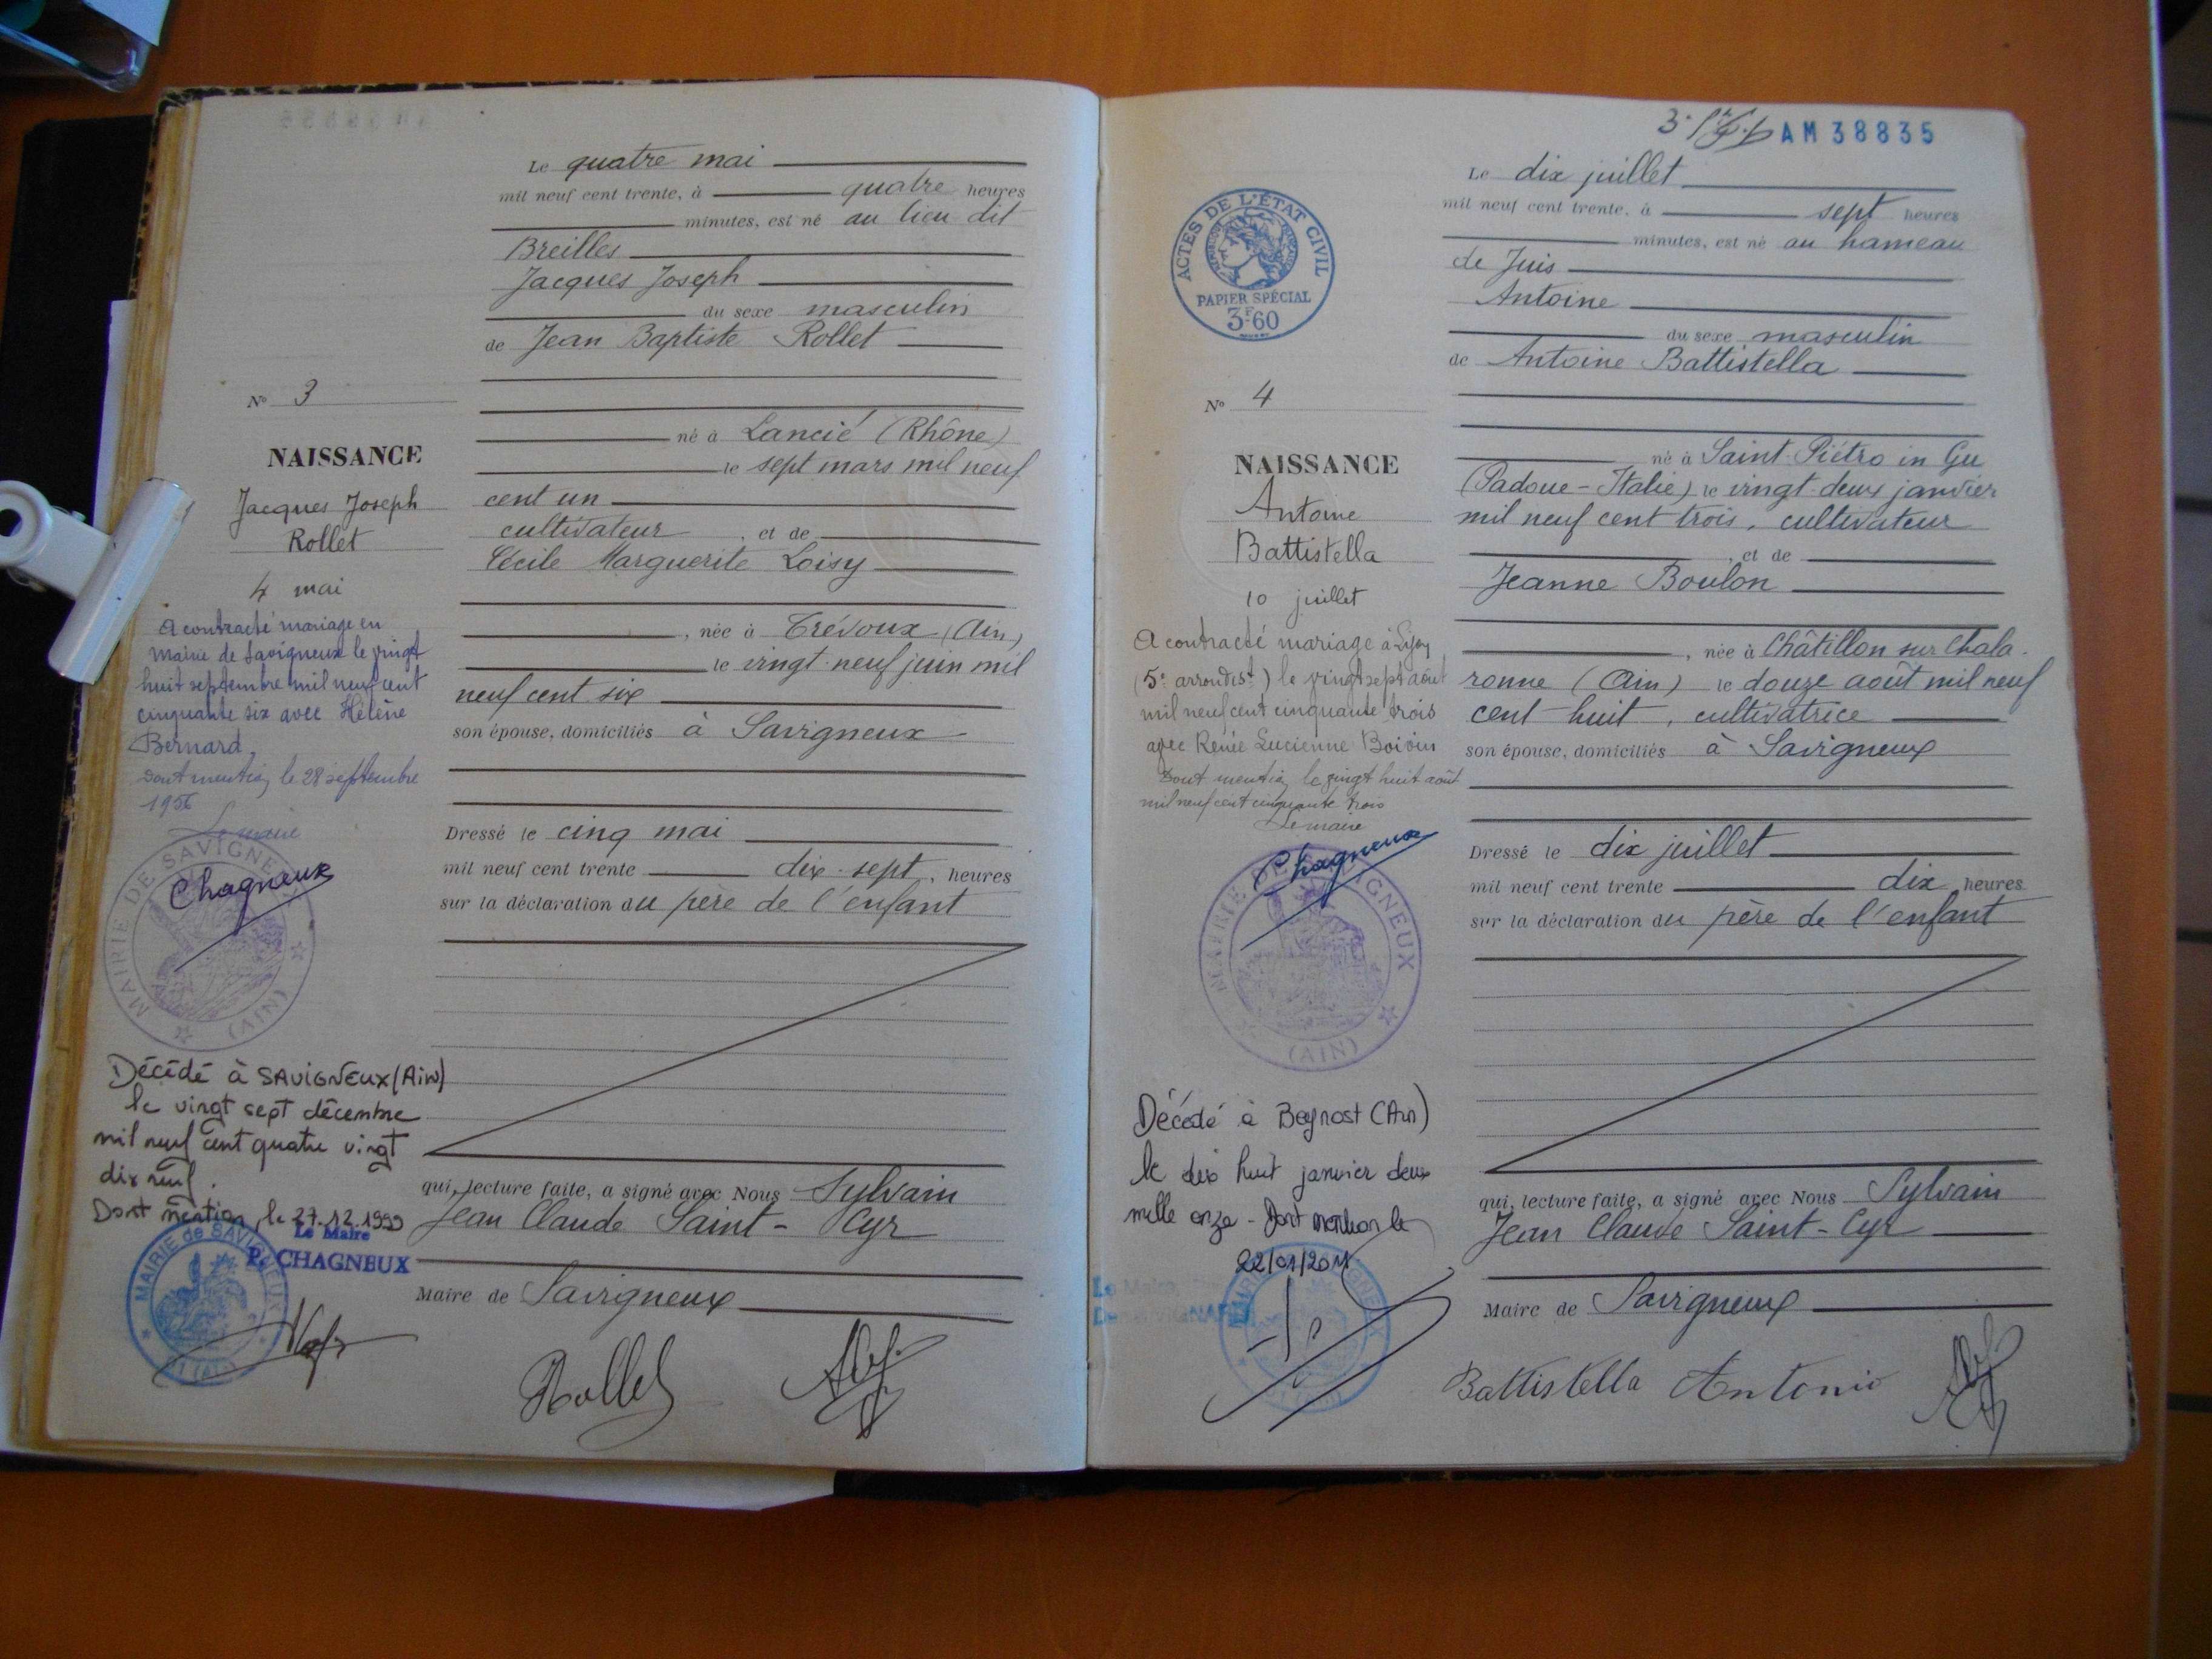 Le quatre mai
mil neuf cent trente, à quatre heures
minutes, est né au lieu dit
Breilles
Jacques Joseph
du sexe masculin
de Jean Baptiste Rollet
né à Lancié (Rhône)
le sept mars mil neuf
cent un
cultivateur, et de
Cécile Marguerite Loisy
, née à Trévoux (Ain)
le vingt-neuf juin mil
neuf cent six
son épouse, domiciliés à Savigneux
Dressé le cinq mai
mil neuf cent trente dix-sept, heures
sur la déclaration du père de l'enfant
qui, lecture faite, a signé avec Nous Sylvain
Jean Claude Saint-Cyr
Maire de Savigneux
Rollet
N° 3
NAISSANCE
Jacques Joseph
Rollet
4 mai
A contracté mariage en
mairie de Savigneux le vingt
huit septembre mil neuf cent
cinquante six avec Hélène
Bernard,
Dont mention, le 28 septembre
1956
Le maire
Chagneux
MAIRIE DE SAVIGNEUX
(AIN)
Décédé à SAVIGNEUX (Ain)
le vingt sept décembre
mil neuf cent quatre vingt
dix neuf.
Dont mention, le 27.12.1999
Le Maire
P. CHAGNEUX
MAIRIE de SAVIGNEUX
(AIN)
AM 38835
Le dix juillet
mil neuf cent trente, à sept heures
minutes, est né au hameau
de Juis
Antoine
du sexe masculin
de Antoine Battistella
né à Saint-Piétro in Gu
(Padoue-Italie) le vingt-deux janvier
mil neuf cent trois, cultivateur
, et de
Jeanne Boulon
, née à Châtillon sur Chala-
ronne (Ain) le douze août mil neuf
cent huit, cultivatrice
son épouse, domiciliés à Savigneux
Dressé le dix juillet
mil neuf cent trente dix heures
sur la déclaration du père de l'enfant
qui, lecture faite, a signé avec Nous Sylvain
Jean Claude Saint-Cyr
Maire de Savigneux
Battistella Antonio
ACTES DE L'ÉTAT CIVIL
PAPIER SPÉCIAL
3F60
N° 4
NAISSANCE
Antoine
Battistella
10 juillet
A contracté mariage à Lyon
(5e arrondist) le vingt sept août
mil neuf cent cinquante trois
avec Renée Lucienne Boivin
Dont mention, le vingt huit août
mil neuf cent cinquante trois
Le maire
Chagneux
MAIRIE DE SAVIGNEUX
(AIN)
Décédé à Beynost (Ain)
le dix huit janvier deux
mille onze - Dont mention le
22/01/2011
Le Maire